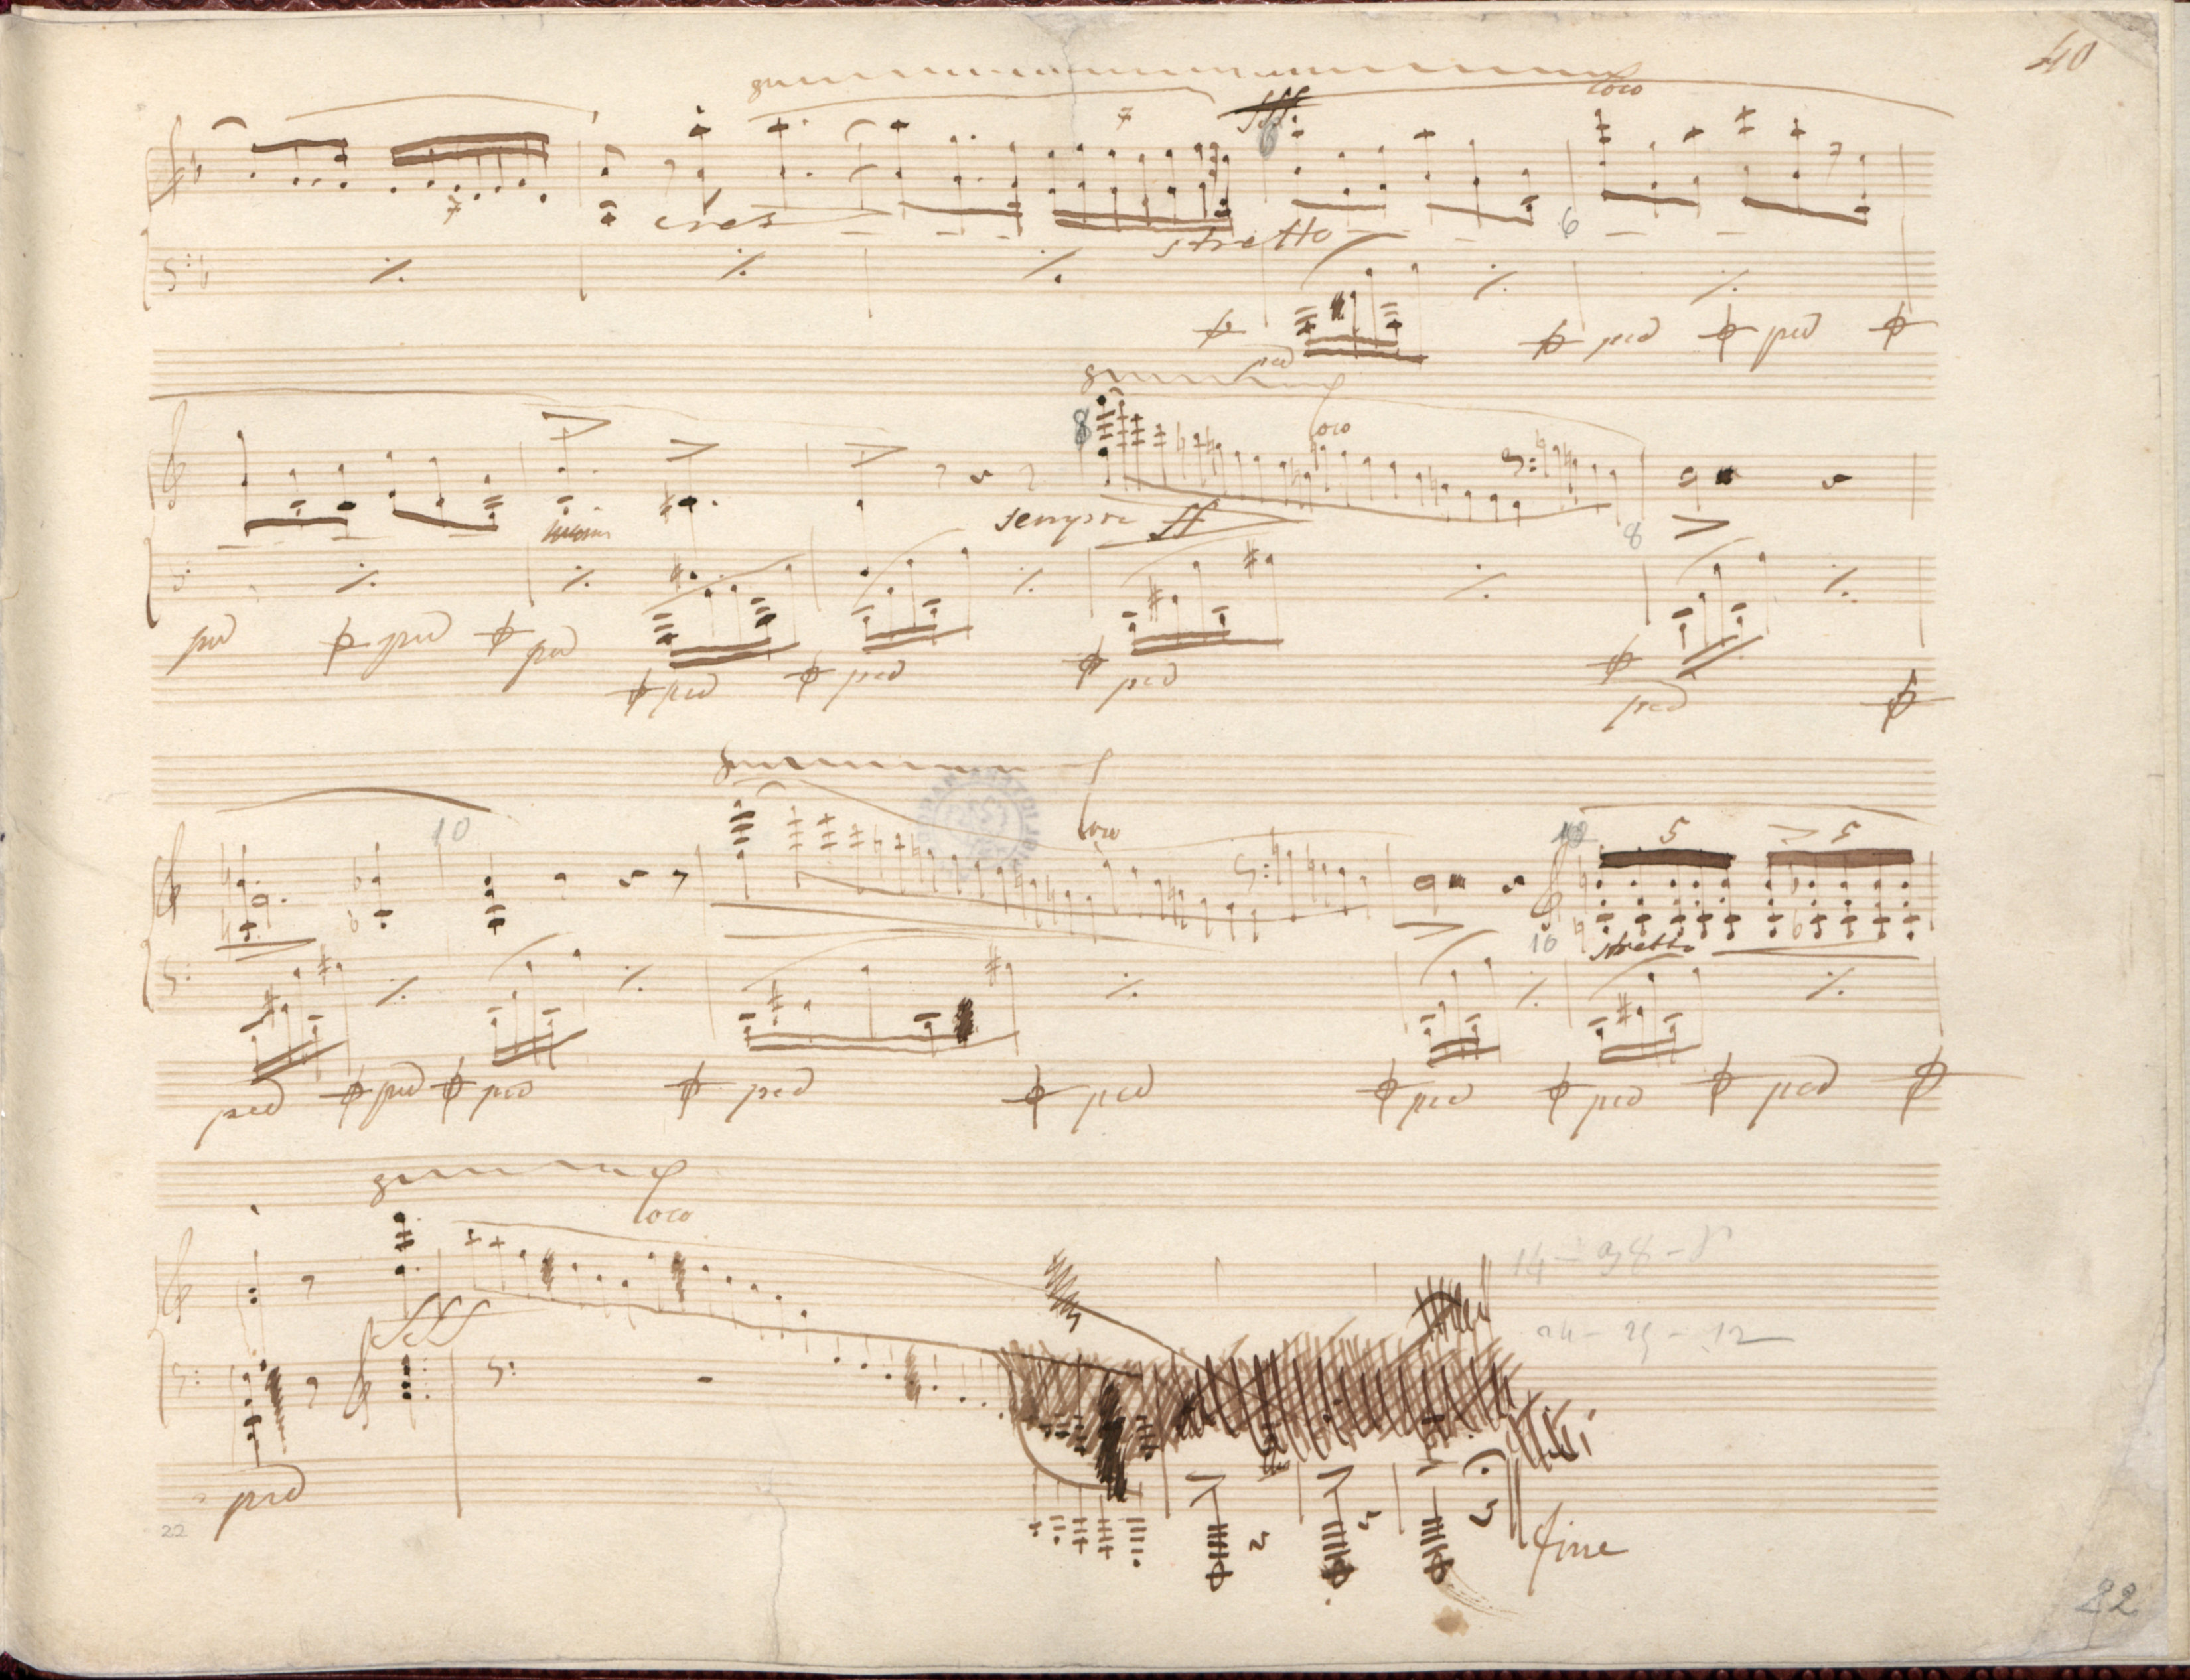 40
8 loco
7
fff
6
7
cres
stretto
6
ped ped ped
8 loco
8
sempre ff
8
ped ped ped ped ped ped ped
8 loco
10
10 5 5
10 stretto
ped ped ped ped ped ped ped ped
8 loco
14 - 38 - 8
fff
24 - 25 - 12
ped
22
fine
22